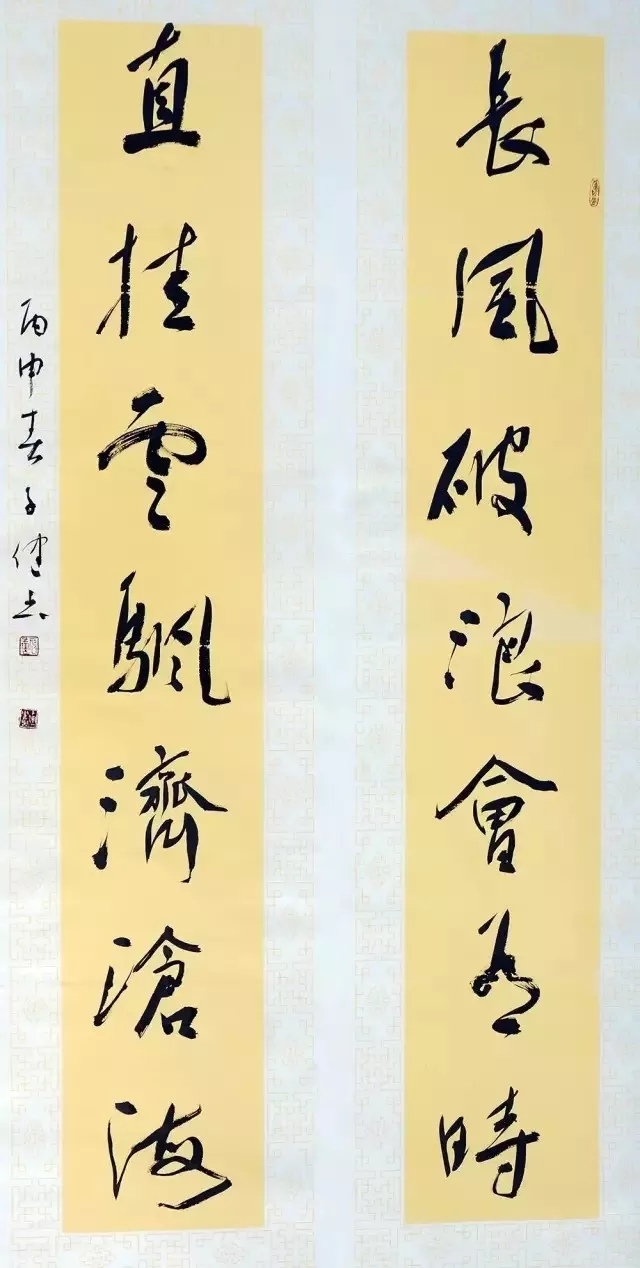 長風破浪會有時
直挂雲颿濟滄海
丙申春子健